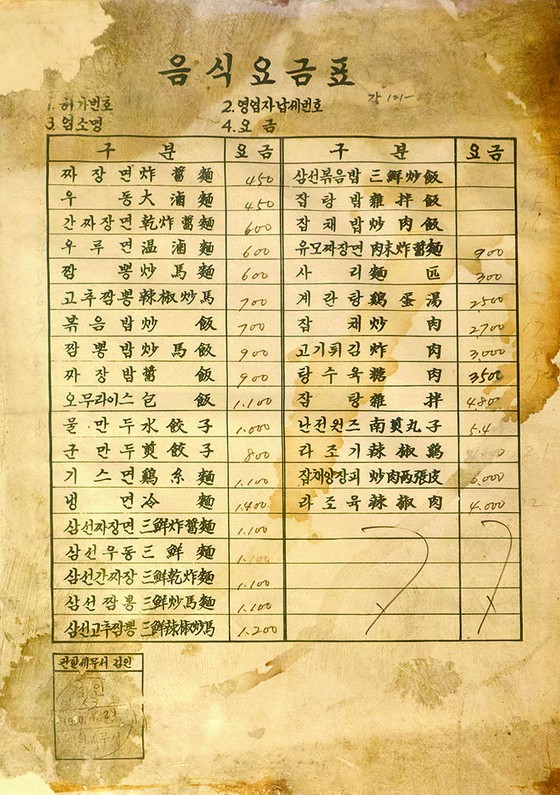 음식요금표
1. 허가번호 2. 영업자납세번호
3. 업소명 4. 요금
구 분 요금 구 분 요금
짜장면 炸醬麵 450 삼선볶음밥 三鮮炒飯
우동 大滷麵 450 잡탕밥 雜拌飯
간짜장면 乾炸醬麵 600 잡채밥 炒肉飯
우류면 温滷麵 600 유모짜장면 肉末炸醬麵 900
짬뽕 炒馬麵 600 사리 麵匹 300
고추짬뽕 辣椒炒馬 700 계란탕 鷄蛋湯 2500
볶음밥 炒飯 700 잡채 炒肉 2,700
짬뽕밥 炒馬飯 900 고기튀김 炸肉 3,000
짜장밥 醬飯 900 탕수육 糖肉 3500
오무라이스 包飯 1.100 잡탕 雜拌 4800
물만두 水餃子 1.000 난전완즈 南煎丸子 5.4
군만두 煎餃子 800 라조기 辣椒鷄
기스면 鷄糸麵 1.100 잡채양장피 炒肉两張皮 6.000
냉면 冷麵 1.400 라조육 辣椒肉 4.000
삼선짜장면 三鮮炸醬麵 1.100
삼선우동 三鮮麵 1.100
삼선간짜장 三鮮乾炸麵 1.100
삼선짬뽕 三鮮炒馬麵 1.100
삼선고추짬뽕 三鮮辣椒炒馬 1.200
관할세무서 검인